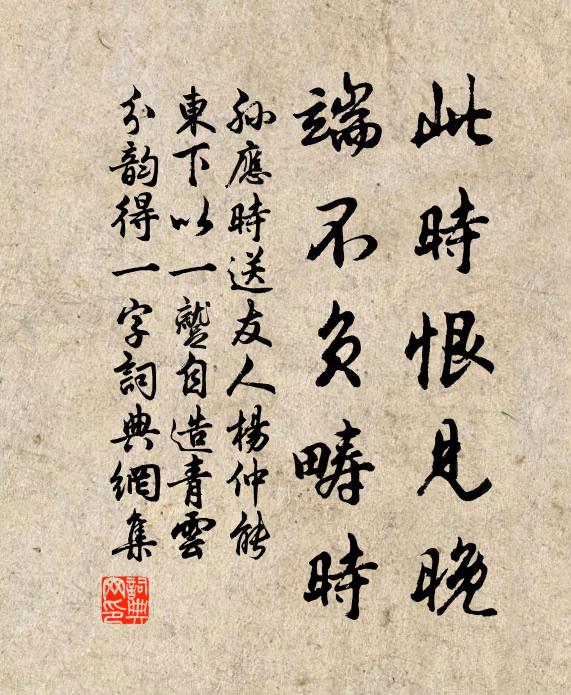 此時恨見晚
端不負疇時
孫應時送友人楊仲能
東下以一蹔自造青雲
分韵得一字詞典網集
詞典网印